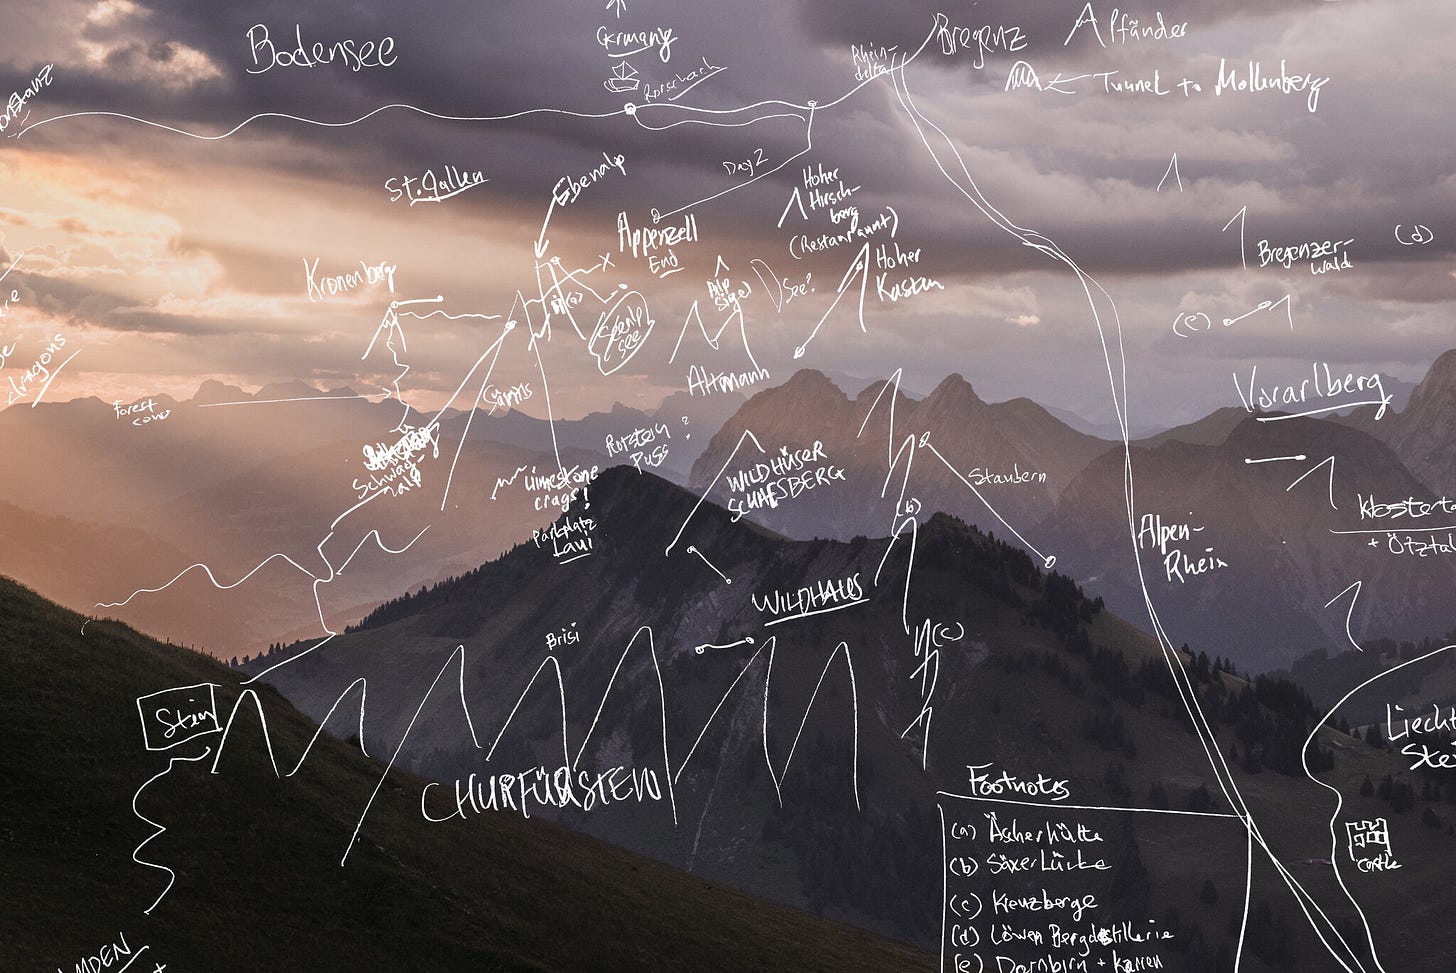 Bodensee
Germany
Rorschach
Rhein-
delta
Bregenz
Pfänder
Tunnel to Mollenberg
St. Gallen
Ebenalp
Day 2
Appenzell
End
Hoher
Hirsch-
berg
(Restaurant)
Hoher
Kasten
See?
Alp
Sigel
Bregenzer-
wald
(d)
(e)
Kronenberg
(a)
Seealp
see
Altmann
Säntis
dragons
Forest
cows
Vorarlberg
Schwäg-
alp
Rotstein ?
Pass
Limestone
crags!
Parkplatz
Laui
WILDHUSER
SCHAFSBERG
Staubern
(b)
Alpen-
Rhein
WILDHAUS
(c)
Brisi
Stein
CHURFÜRSTEN
Liecht
Stei
Castle
Footnotes
(a) Äscherhütte
(b) Saxerlücke
(c) Kreuzberge
(d) Löwen Bergdestillerie
(e) Dornbirn + Karren